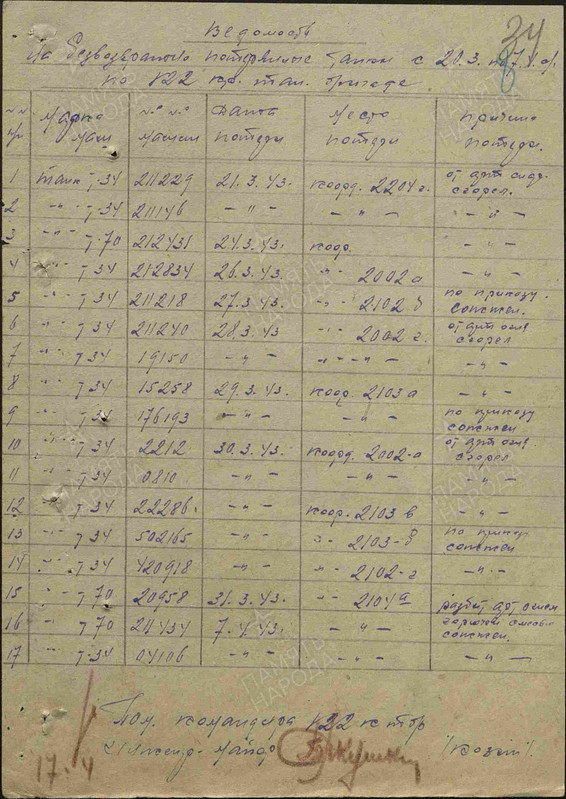 34
8
Ведомость
На безвозвратно потерянные танки с 20.3. по 7.4.
по 122 тан. бригаде.
№ № п/п Марка маш № № машин Дата потери Место потери Причина потери.
1 танк Т-34 211229 21.3.43. коорд. 2204 г. от арт сгорел.
2 -"- Т-34 21114б -"- -"- -"-
3 -"- Т-70 212431 24.3.43. коор. -"-
4 -"- Т-34 212834 26.3.43. -"- 2002 а -"-
5 -"- Т-34 211218 27.3.43. -"- 2102 б по приказу сожжен.
6 -"- Т-34 211240 28.3.43 -"- 2002 г. от арт огня сгорел
7 -"- 19150 -"- -"- -"-
8 -"- Т-34 15258 29.3.43. коор 2103 а -"-
9 -"- Т-34 176193 -"- -"- по приказу сожжен
10 -"- Т-34 2212 30.3.43. коорд. 2002-а от арт огня сгорел
11 -"- Т-34 0810 -"- -"- -"-
12 -"- Т-34 22286. -"- коор. 2103 в -"-
13 -"- Т-34 502165 -"- -"- 2103-б по приказу сожжен
14 -"- Т-34 420918 -"- -"- 2102-г -"-
15 -"- Т-70 20958 31.3.43. -"- 2104а разбит арт огнем
16 -"- Т-70 211434 7.4.43. -"- сожжен.
17 -"- Т-34 04106 -"- -"- -"-
Пом. командира 122
Инженер-майор
17.4
ПАМЯТЬ НАРОДА